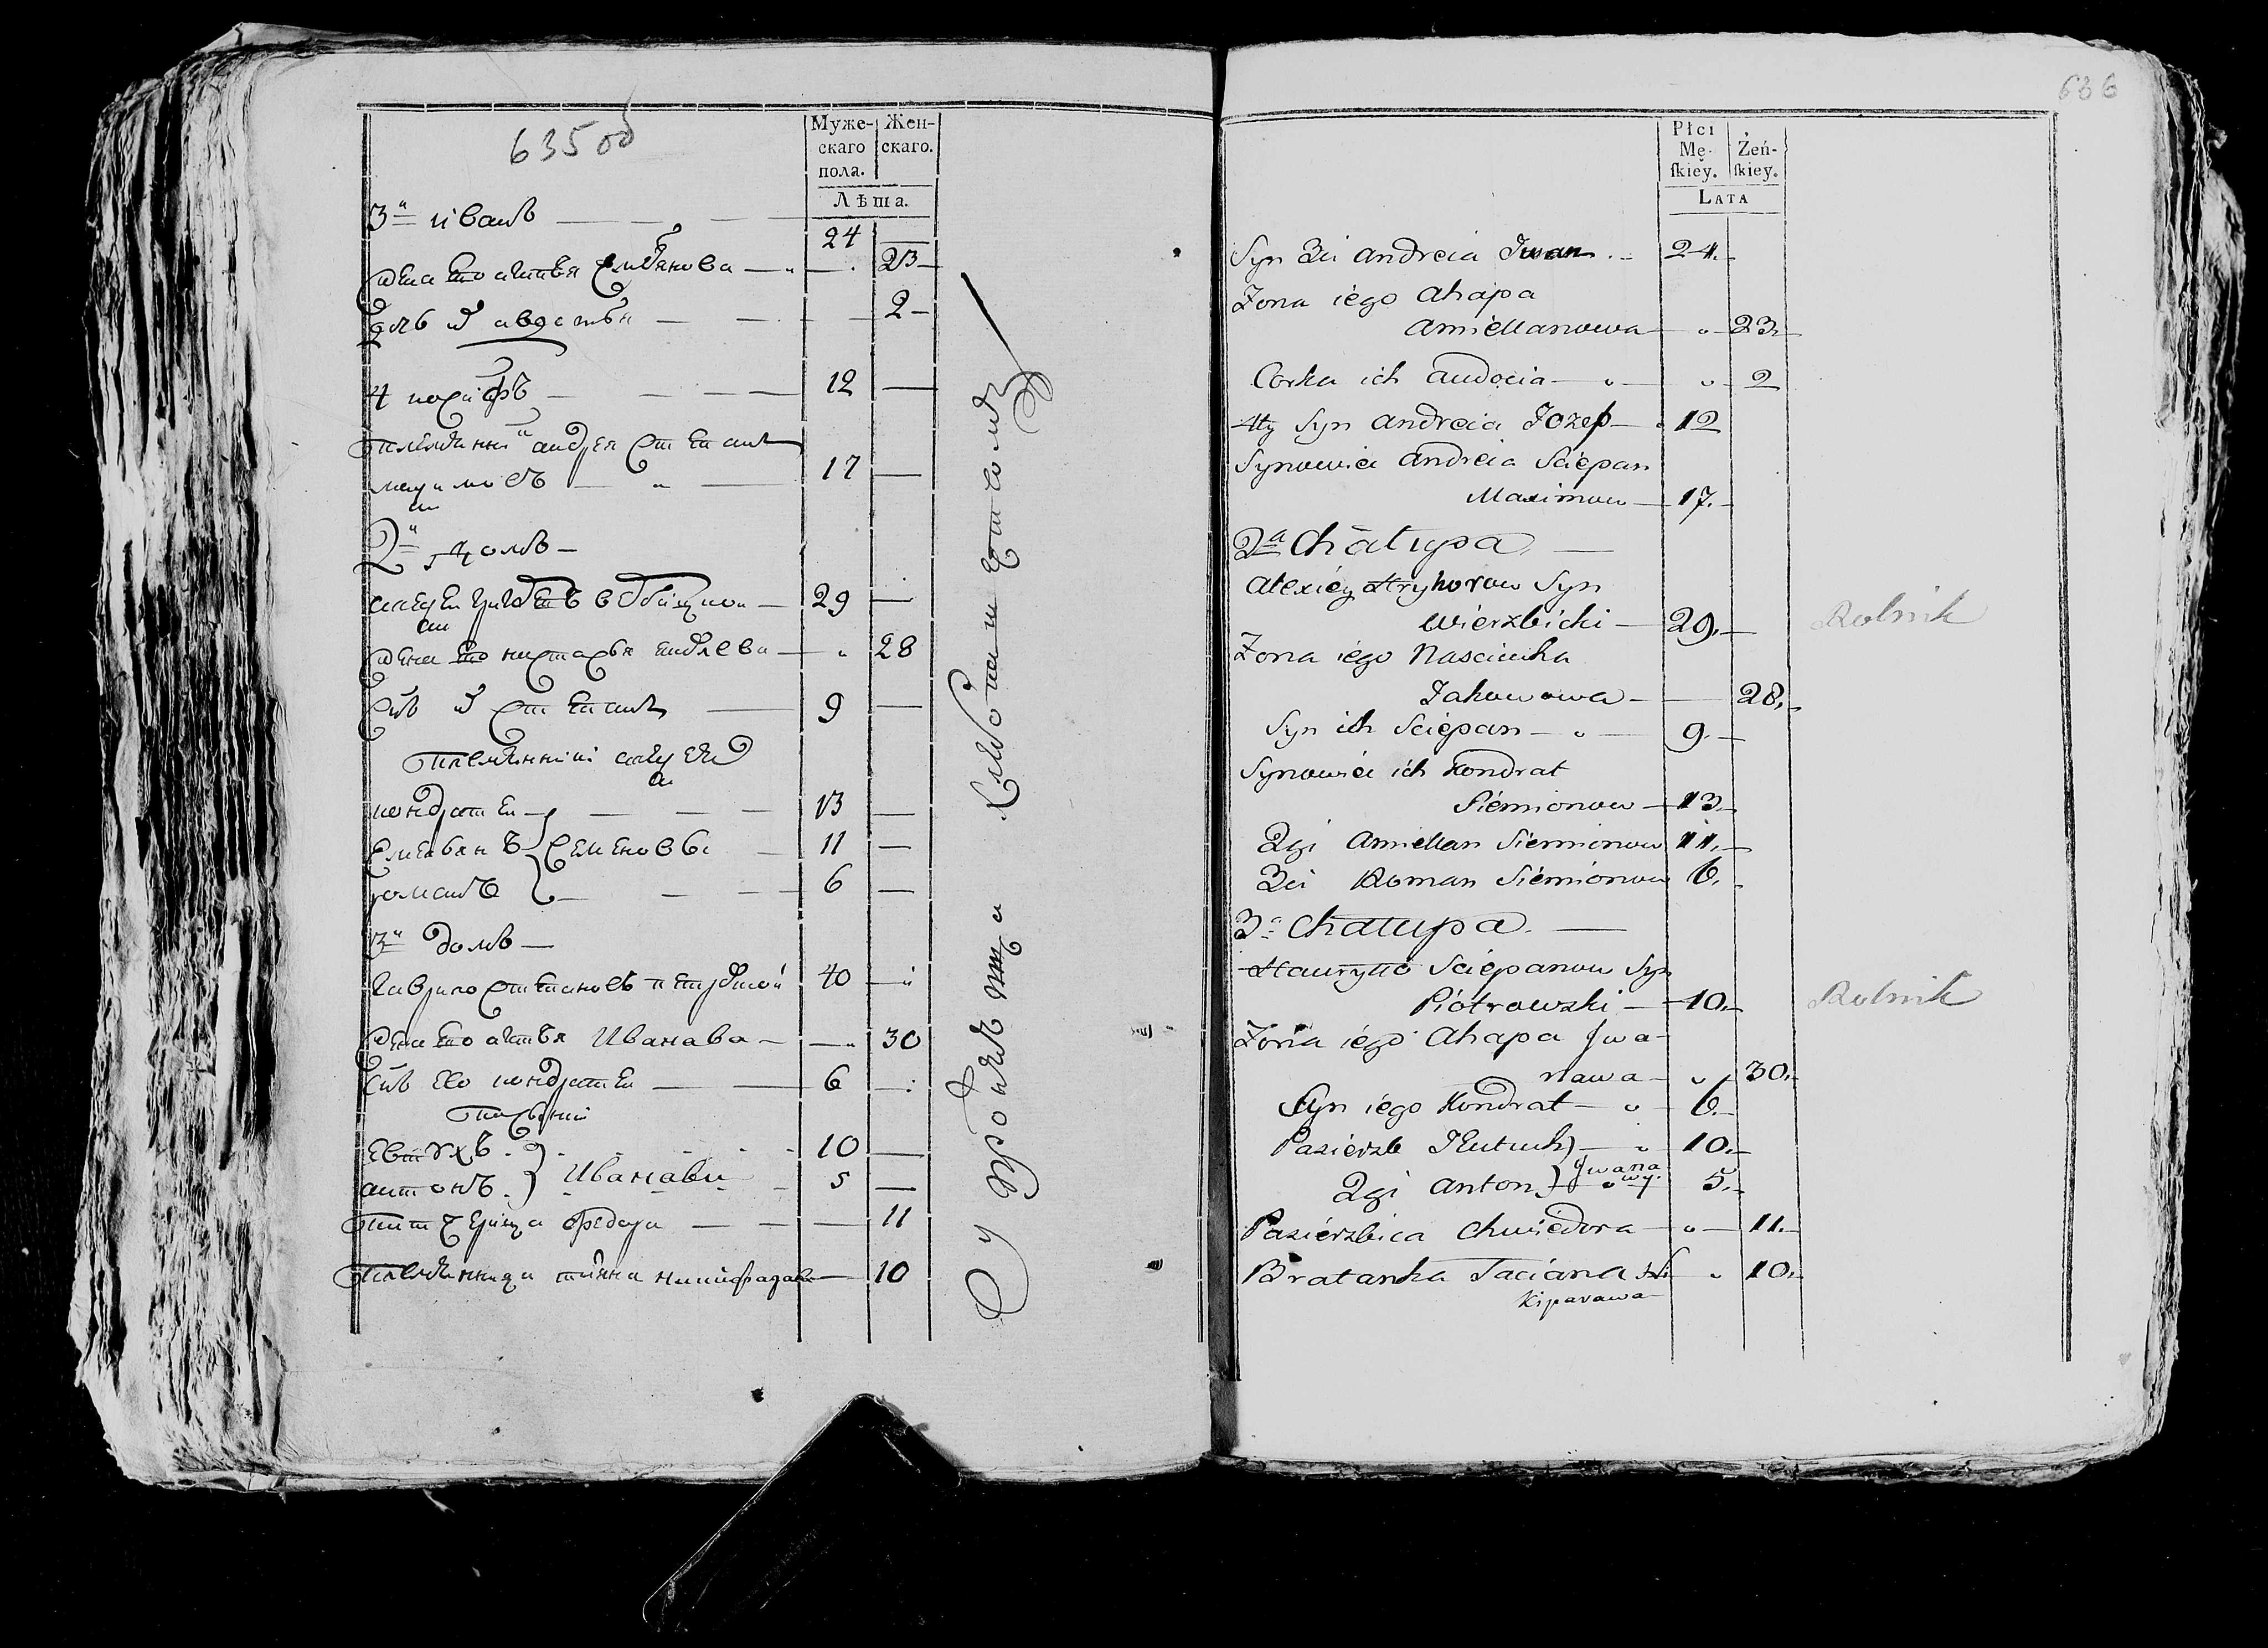 635 об
Муже- Жен-
скаго скаго.
пола.
Лѣта.
3й иванъ — 24 —
жена его агатья емельянова — 23
дочь их авдотья — 2
4 иосифъ — 12 —
племянникъ андрея степанъ
максимовъ — 17 —
2й домъ —
алексей 29 —
жена его настасья яковлева — 28
сынъ их степанъ — 9 —
племянники алексея
кондратей — 13 —
емельянъ } семеновы 11 —
романъ — 6 —
3й домъ —
гаврило степановъ петровской 40 —
жена его агатья Иванава — 30
сынъ его кондратей — 6 —
пасынки
евтухъ 10 —
антонъ } Иванави 5 —
патчерица федора — 11
племянница татьяна никифарава — 10
636
Płci
Mę- Żeń-
ſkiey. ſkiey.
LATA
Syn 3ci andreia Iwan 24.
Zona iego ahapa
amiellanowa — 23.
Corka ich audocia — 2
4ty Syn andreia Jozef — 12
Synowiec andreia Sciepan
Maximow — 17.
2a Chałupa. —
alexiey Hryhorow Syn
wierzbicki — 29. Rolnik
Zona iego Nasciucha
Jakowowa — 28.
Syn ich Sciepan — 9.
Synowiec ich Kondrat
Siemionow — 13.
2gi amiellan Siemionow 11.
3ci Roman Siemionow 6.
3a Chałupa. —
Hauryłło Sciepanow Syn
Piotrowski — 40. Rolnik
Zona iego ahapa Jwa-
nawa — 30.
Syn iego Kondrat — 6.
Pasierzb Jeutuch) — 10.
2gi anton } Jwana
wy. 5.
Pasierzbica Chwiedora — 11.
Bratanka Taciana Ni- 10.
kiparawa